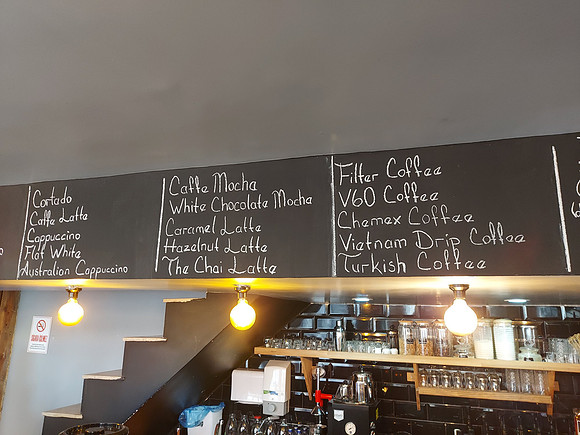 Cortado
Caffe Latte
Cappuccino
Flat White
Australian Cappuccino
Caffe Mocha
White Chocolate Mocha
Caramel Latte
Hazelnut Latte
The Chai Latte
Filter Coffee
V60 Coffee
Chemex Coffee
Vietnam Drip Coffee
Turkish Coffee